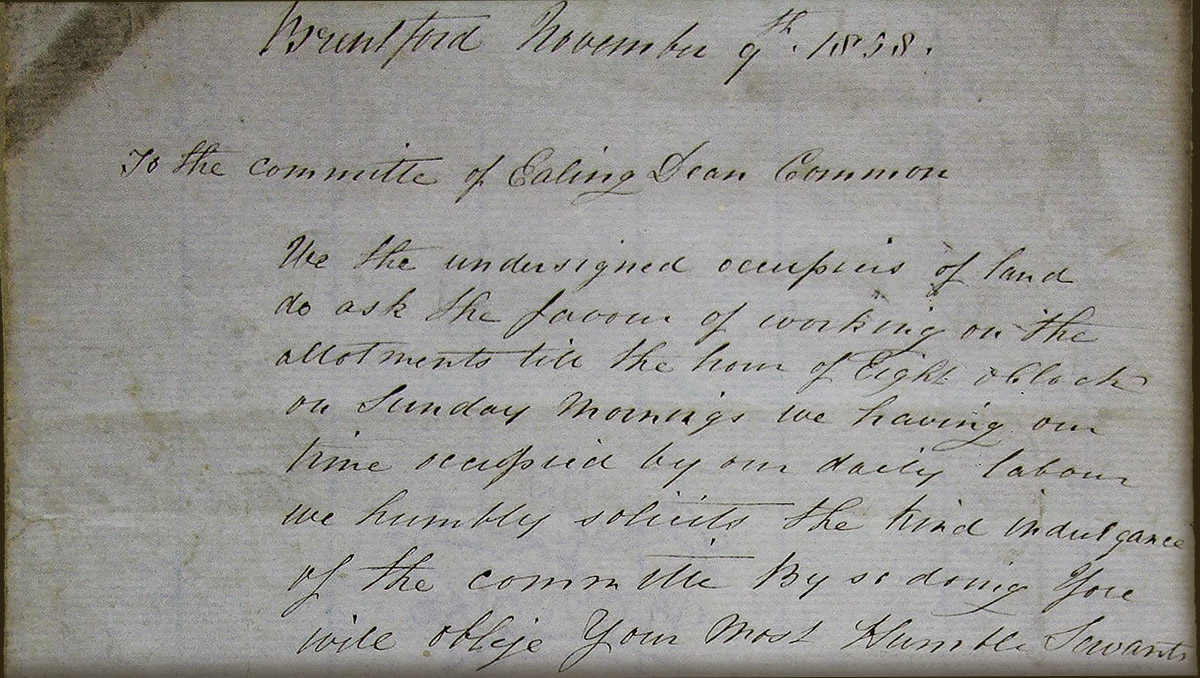 Brentford November 9th. 1858.
To the committe of Ealing Dean Common
We the undersigned occupiers of land
do ask the favour of working on the
allotments till the hour of Eight oClock
on Sunday Mornings we having our
time occupied by our daily labour
we humbly solicits the kind indulgance
of the committe By so doing You
will oblije Your Most Humble Servants